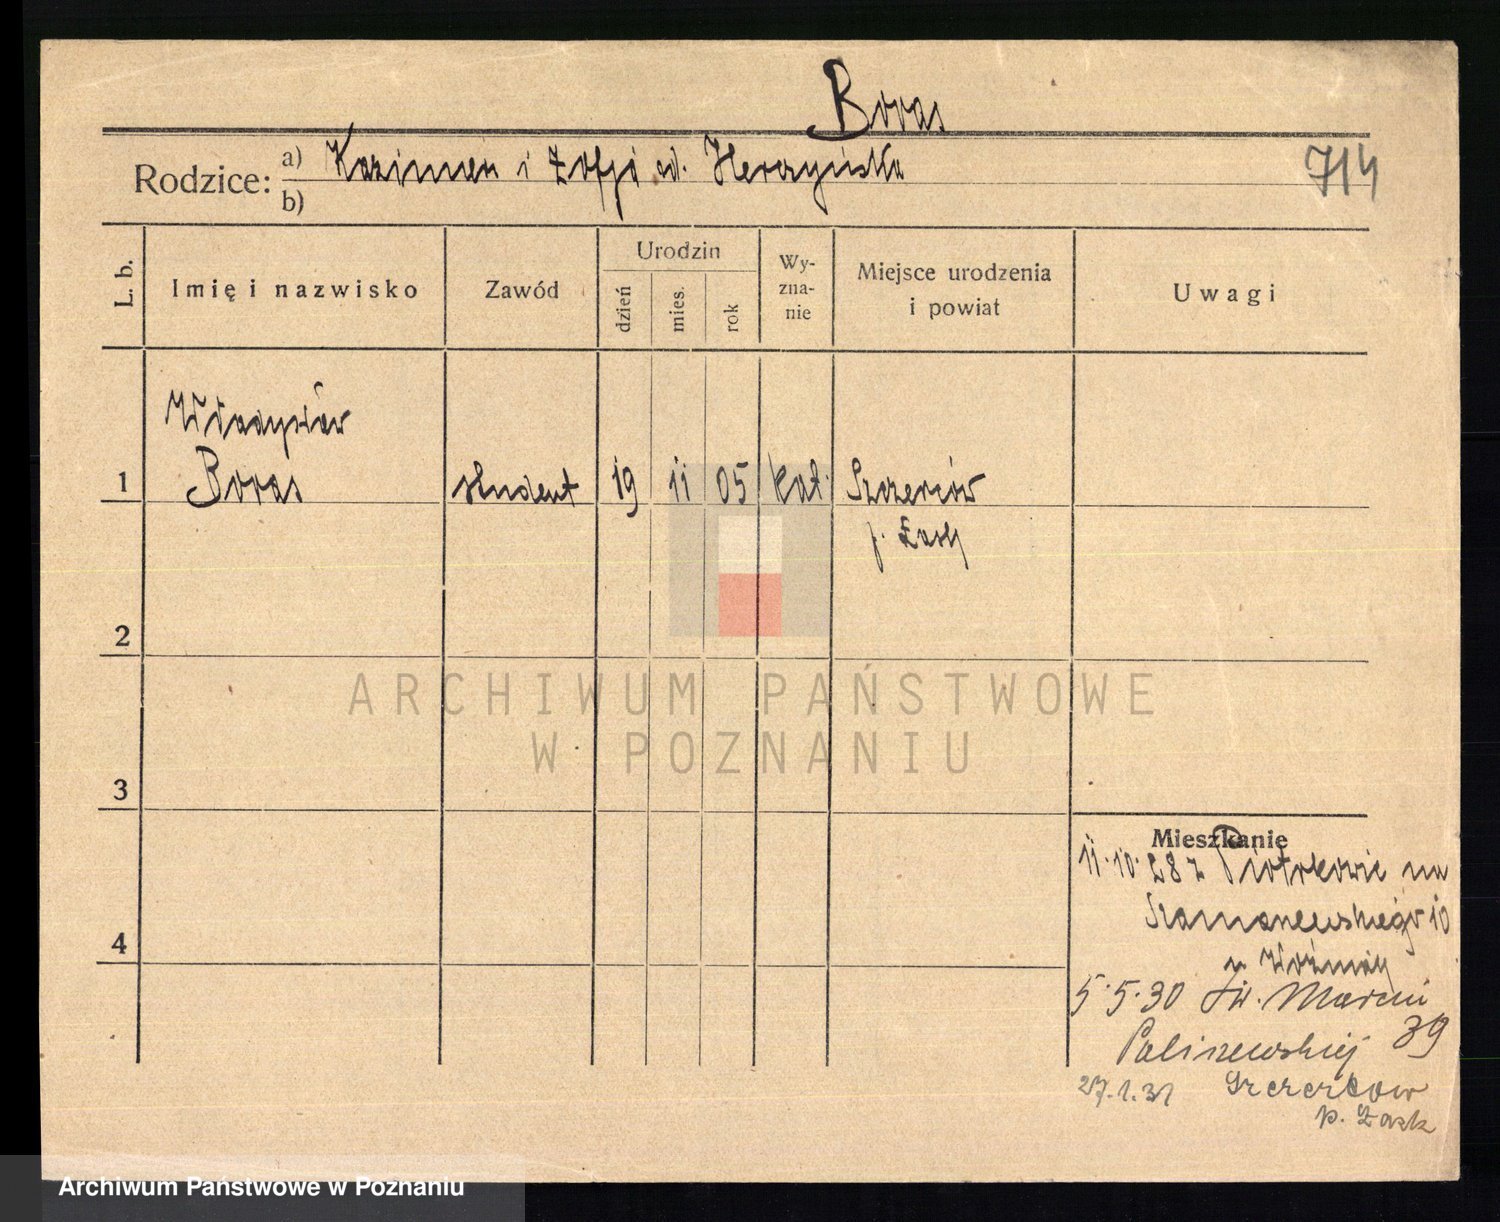 Boras
Rodzice: a) Kazimierz i Zofja od. Herczyńska
b)
714
L. b.
Imię i nazwisko
Zawód
Urodzin
dzień
mies.
rok
Wy-
zna-
nie
Miejsce urodzenia
i powiat
Uwagi
Władysław
1 Boras student 19 11 05 kat. Szczerców
p. Łask
2
3
4
ARCHIWUM PAŃSTWOWE
W POZNANIU
Mieszkanie
11.10.28 z Piotrkowic na
Szamarzewskiego 10
u Woźnicy
5.5.30 Św. Marcin
39
Paliszewskiej
27.1.31 Szczerców
p. Łask
Archiwum Państwowe w Poznaniu